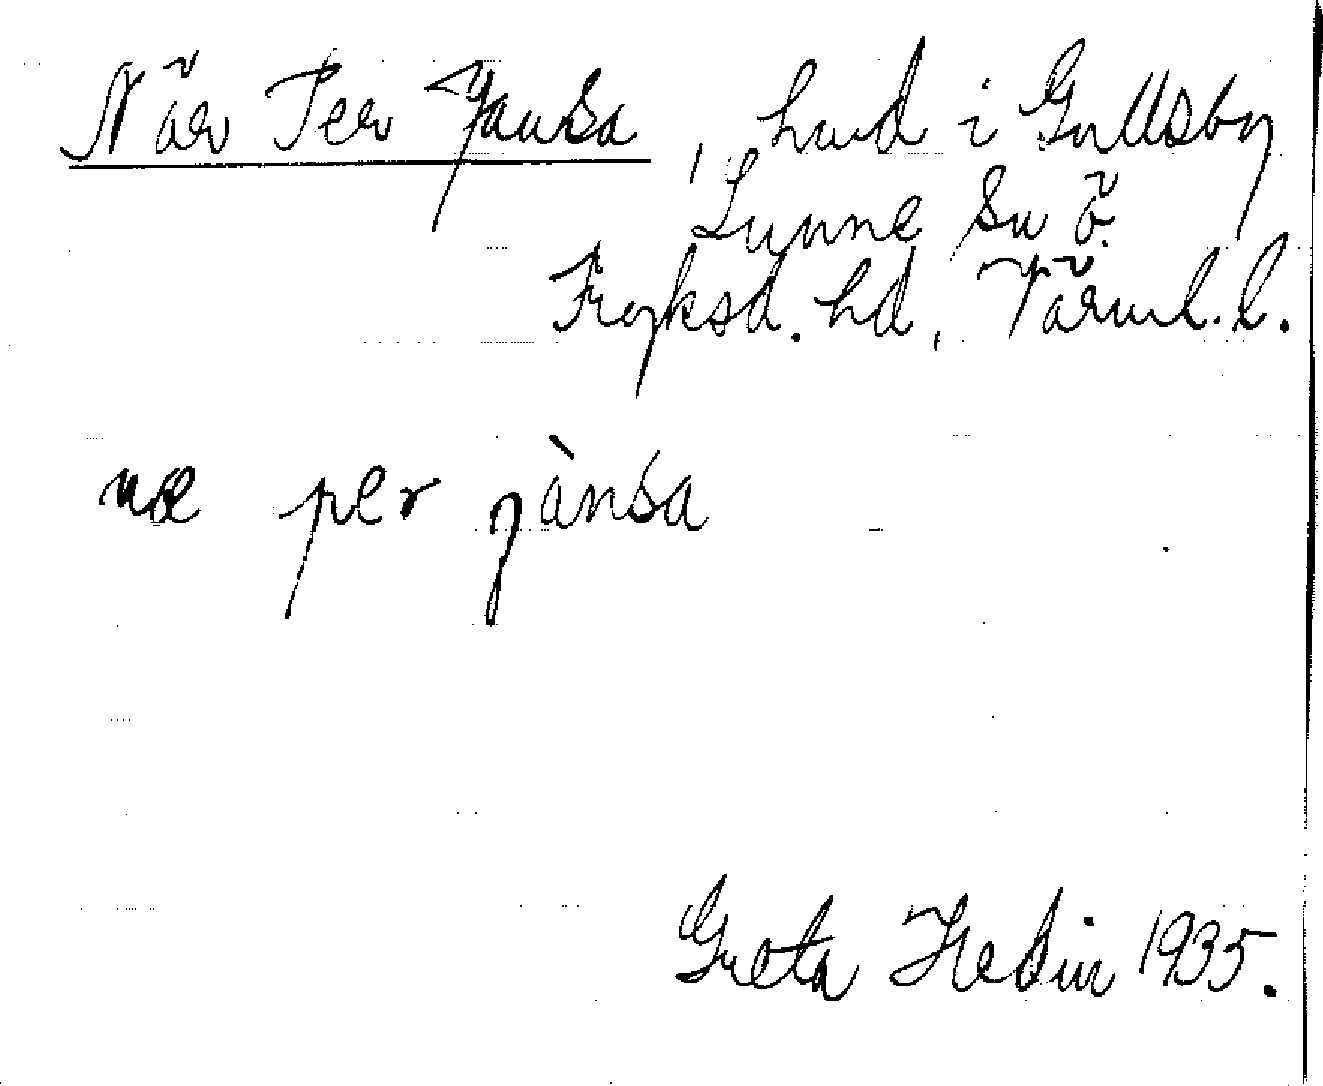 När Per Jansa, hmd i Gullsby
Sunne sn ö.
Fryksd. hd, Värml. l.
næ per jànsa
Greta Hedin 1935.